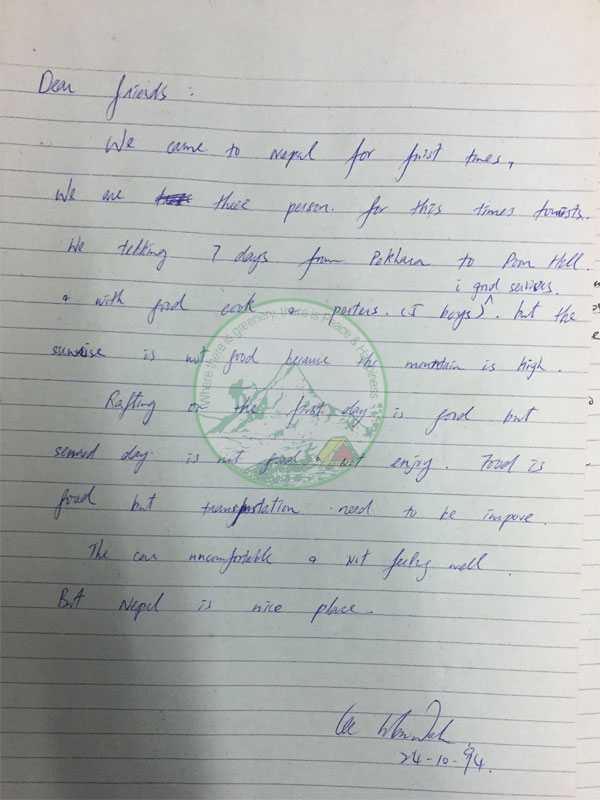 Dear friends:
We came to Nepal for frist times,
We are three person. for this times tourists.
We tekking 7 days from Pokhara to Poon Hill
i good services.
& with good cook & porters. (5 boys). but the
sunrise is not good because the mountain is high.
Rafting on the first day is good but
second day is not good, not enjoy. Food is
good but transportation need to be impove.
The car uncomfortable & not feeling well.
But Nepal is nice place.
Lee
24-10-94.
Where there is greenery, there is Peace & Happiness